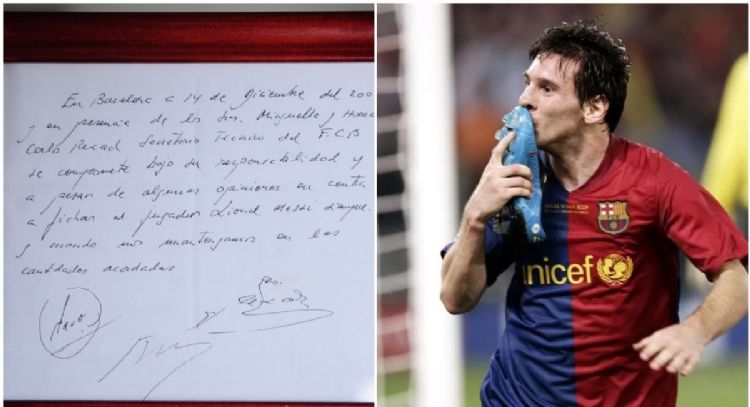 En Barcelona a 14 de Diciembre del 200
y en presencia de los Srs. Minguella y
Carlos Rexach Secretario Tecnico del F.C.B
se compromete bajo su responsabilidad y
a pesar de algunas opiniones en contra
a fichar al jugador Lionel Messi siempre
y cuando nos mantengamos en las
cantidades acordadas
unicef